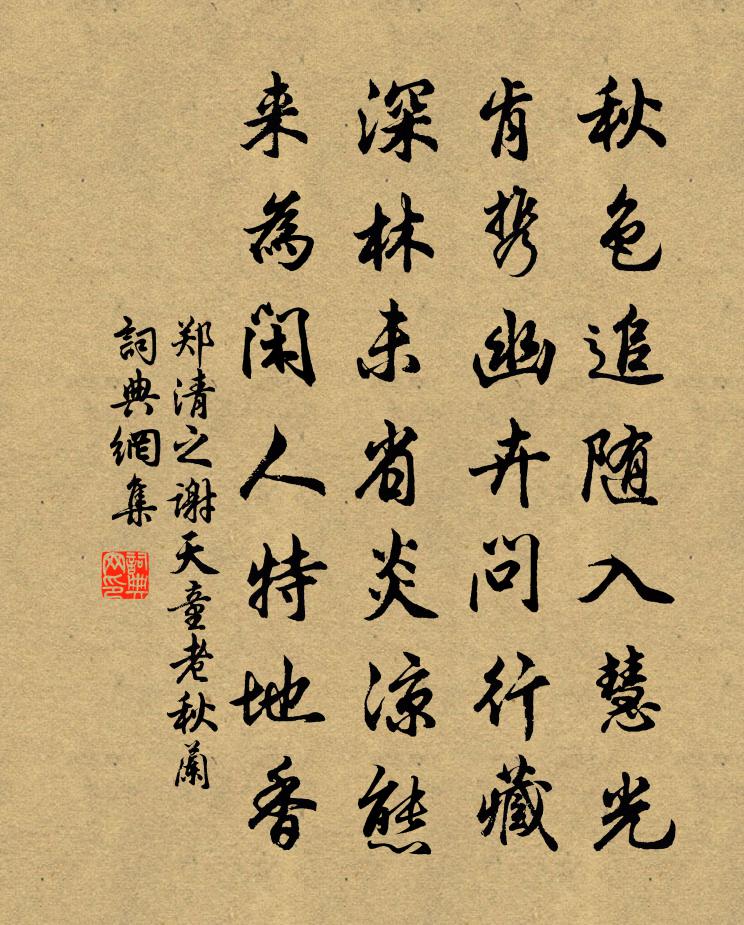 秋色追随入慧光
肯携幽卉问行藏
深林未省炎凉態
来為闲人特地香
郑清之谢天童老秋蘭
詞典網集
詞典网印